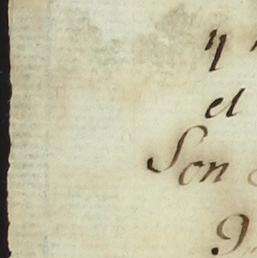 y
el
Son
9